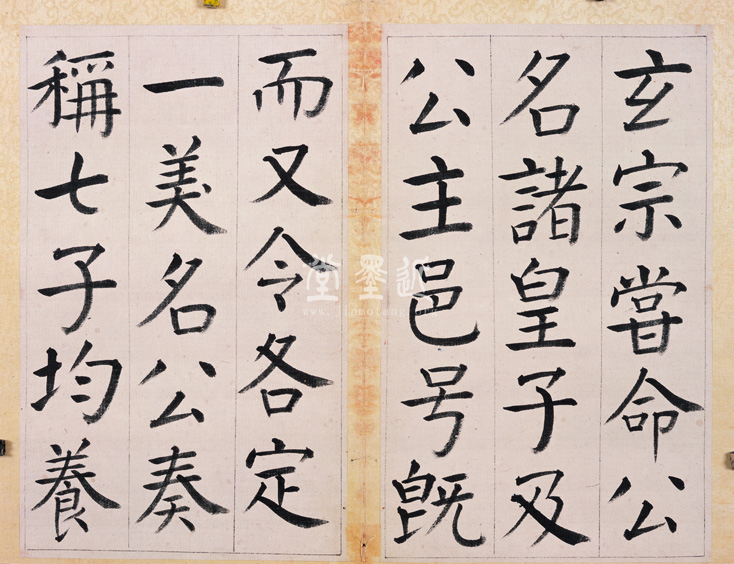 玄宗嘗命公
名諸皇子及
公主邑号既
而又令各定
一美名公奏
稱七子均養
近墨堂
www.jinmotang.org